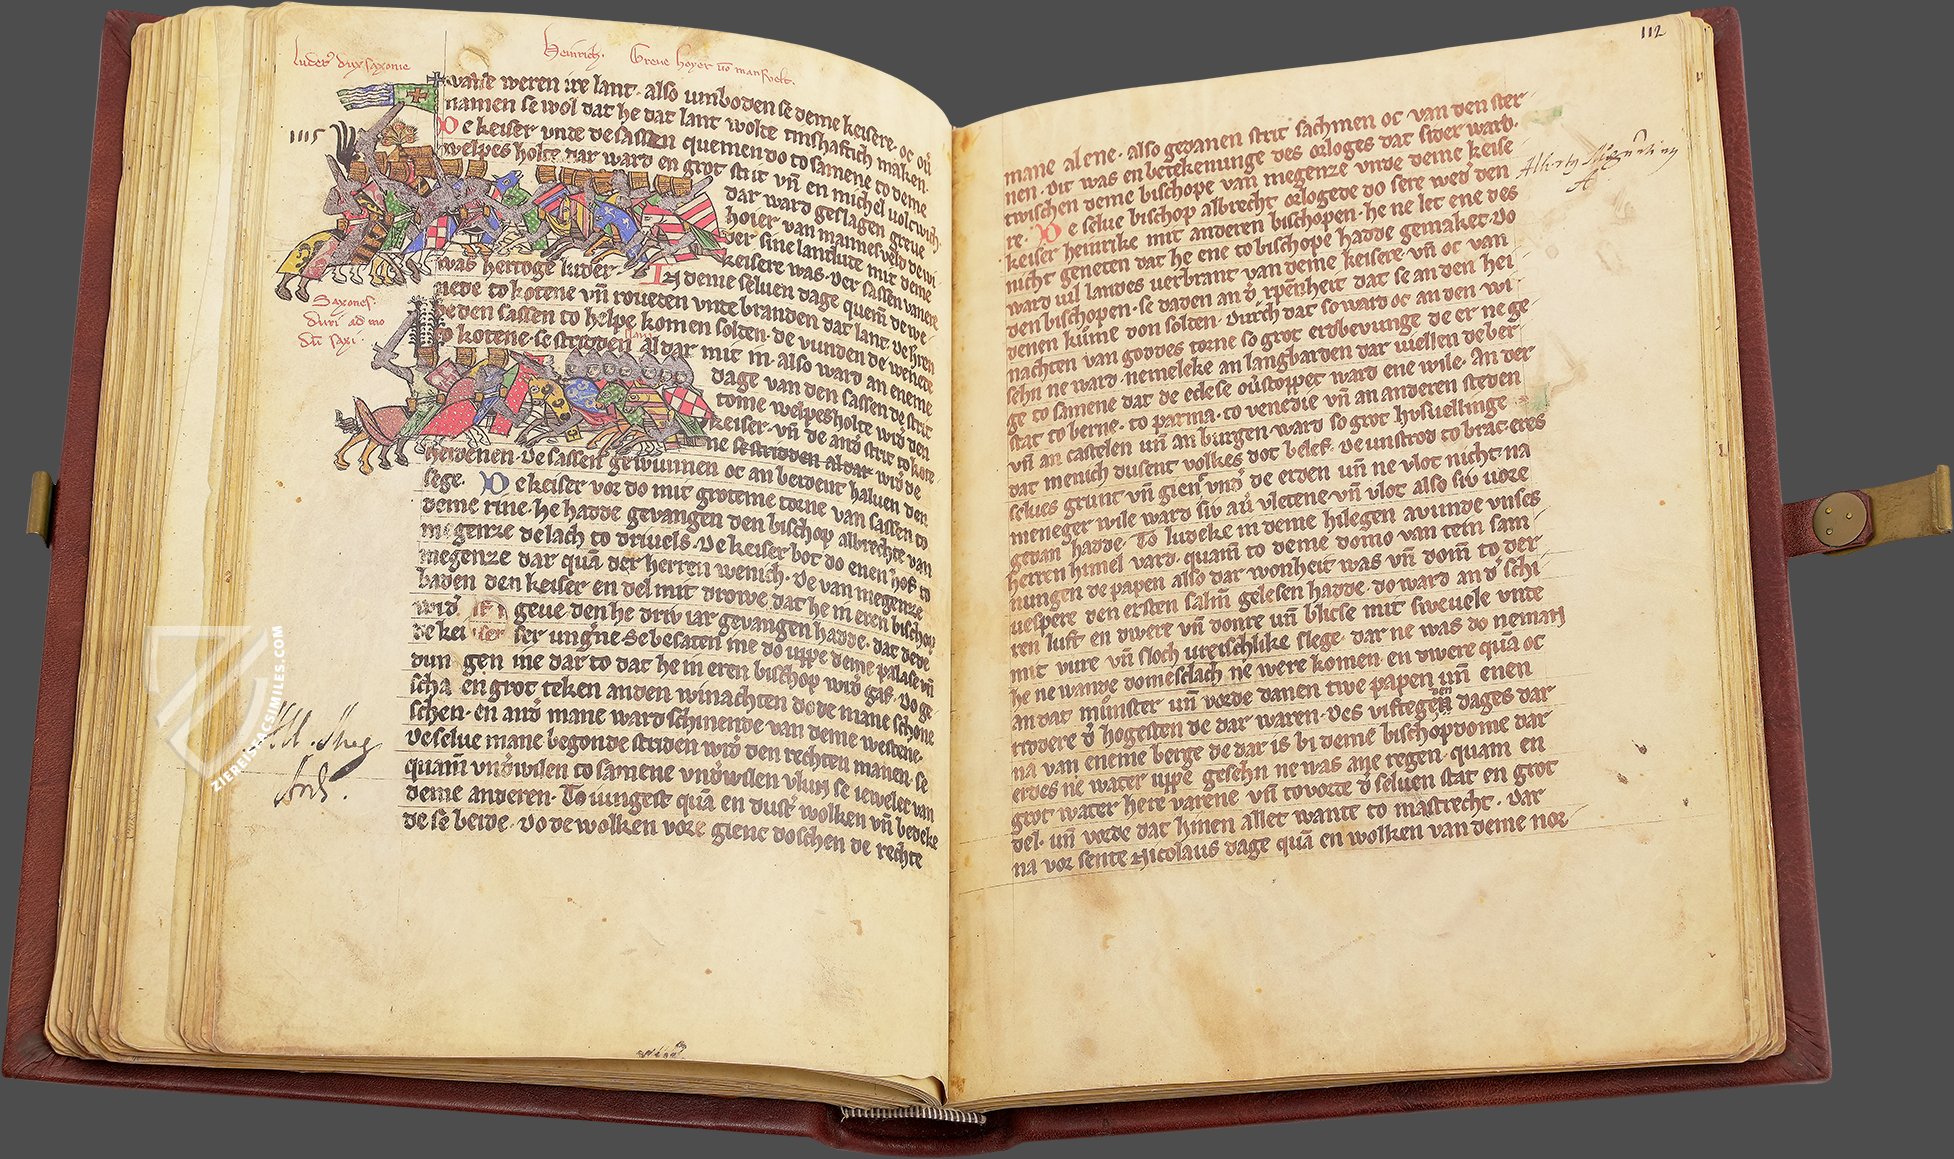 luder dux saxonie
Heinrich. Greue hoyer vō mansvelt.
1115
were weren ire lant. also umboden se deme keisere. oc oū
namen se wol dat he dat lant wolte tinshaftich maken.
De keiser vnte de sassen quemen do to samene to deme
welpes holte dar ward en grot strit vn̄ en michel volcwich
dar ward geslagen greue
hoier van mannesveld de wi
der sine lantlute mit deme
keisere was. Der sassen vanere
was hertoge luder. In deme seluen dage quem̄ de we
nede to kotene vn̄ roueten vnte branden dat lant. De hren
de den sassen to helpe komen solten. de vunden de wenede
to kotene. se stridden aldar mit in. also ward an eneme
dage van den sassen de strit
tome welpesholte wid den
keiser. vn̄ de and strit to kote
ne se stridden aldar wid de
Saxones.
duri ad mo
dū saxi.
heidenen. De sassen gewunnen oc an beident haluen den
sege. De keiser vor do mit groteme torne van sassen to
deme rine. he hadde gevangen den bischop albrechte van
megenze de lach to driuels. De keiser bot do enen hof to
megenze dar quā der herren wenich. De van megenze
baden den keiser en del mit drowe dat he in eren bischop
wid geue den he driv iar gevangen hadde. dat dede
de kei ser ungne. Se besaten ine do uppe deme palase vn̄
dun gen ine dar to dat he in eren bischop wid gaf. Do ge
scha en grot teken an den winachten do de mane schone
schen. en and mane ward schinende van deme westene.
De selue mane begonde striden wid den rechten manen. se
quam vndwilen to samene vndwilen vlun se ieweler van
deme anderen. To iungest quā en duster wolken vn̄ bedeke
de se beide. Do de wolken vore gienc do schen de rechte
112
mane alene. also gedanen strit sachmen oc van den ster
nen. dit was en betekenunge des orloges dat sider ward.
twischen deme bischope van megenze vnde deme keise
re. De selue bischop albrecht orlogede do sere wed den
keiser heinrike mit anderen bischopen. he ne let ene des
nicht geneten dat he ene to bischope hadde gemaket. Do
ward uil landes uerbrant van deme keisere. vn̄ oc van
den bischopen. se daden an d xpenheit dat se an den hei
denen kume don solten. Durch dat so ward oc an den wi
nachten van goddes torne so grot erdbevunge de er ne ge
sehn ne ward. nemeleke an langbarden dar vielen de ber
ge to samene dat de edese oūstoppet ward ene wile. An der
stat to berne. to parma. to venedie vn̄ an anderen steden
vn̄ an castelen un̄ an burgen ward so grot husuellinge
dat menich dusent volkes dot belef. De unstrod to brac eres
selues grunt vn̄ gien vnd de erden un̄ ne vlot nicht na
meneger wile ward siv aū vletene vn̄ vlot also siv uore
gedan hadde. To ludeke in deme hilegen auunde vnses
herren himel vard. quam to deme domo van tein sam
nungen de papen also dar wonheit was vn̄ dom̄ to der
uespere den ersten salm̄ gelesen hadde. do ward an d schi
ren luft en dwere vn̄ donre un̄ blicse mit sweuele vnte
mit vure vn̄ sloch ureischlike slege. dar ne was do neman
he ne wande domesclach ne were komen. en dwere quā oc
an dat munster un̄ vorde danen twe papen un̄ enen
riddere d hogesten de dar waren. Des viftegen dages dar
na van eneme berge de dar is bi deme bischopdome dar
erdes ne water uppe gesehn ne was ane regen. quam en
grot water here varene vn̄ tovorte d seluen stat en grot
del. un̄ vorde dat hinen allet wante to mastrecht. Dar
na vor sente Nicolaus dage quā en wolken van deme nor
ZIEREIS FACSIMILES.COM